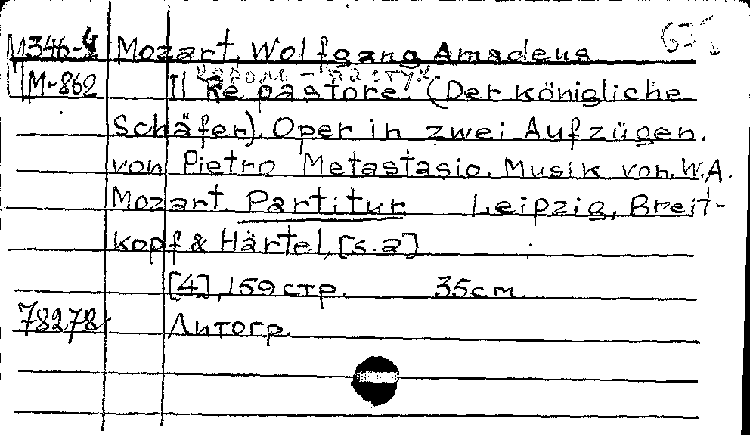 М346-4 Mozart, Wolfgang Amadeus
М-862 Il Re pastore. (Der königliche
Schäfer). Oper in zwei Aufzügen.
von Pietro Metastasio. Musik von W.A.
Mozart. Partitur Leipzig, Breit-
kopf & Härtel, [s.a]
[4], 159 стр. 35 см
78278 Литогр.